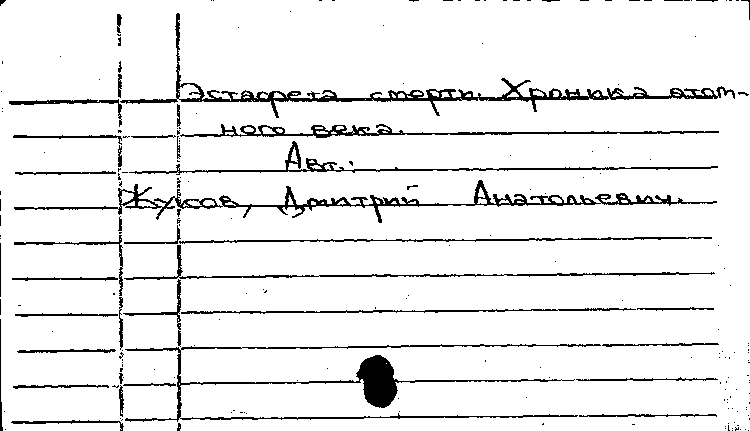 Эстафета смерти. Хроника атом-
ного века.
Авт.:
Жуков, Дмитрий Анатольевич.